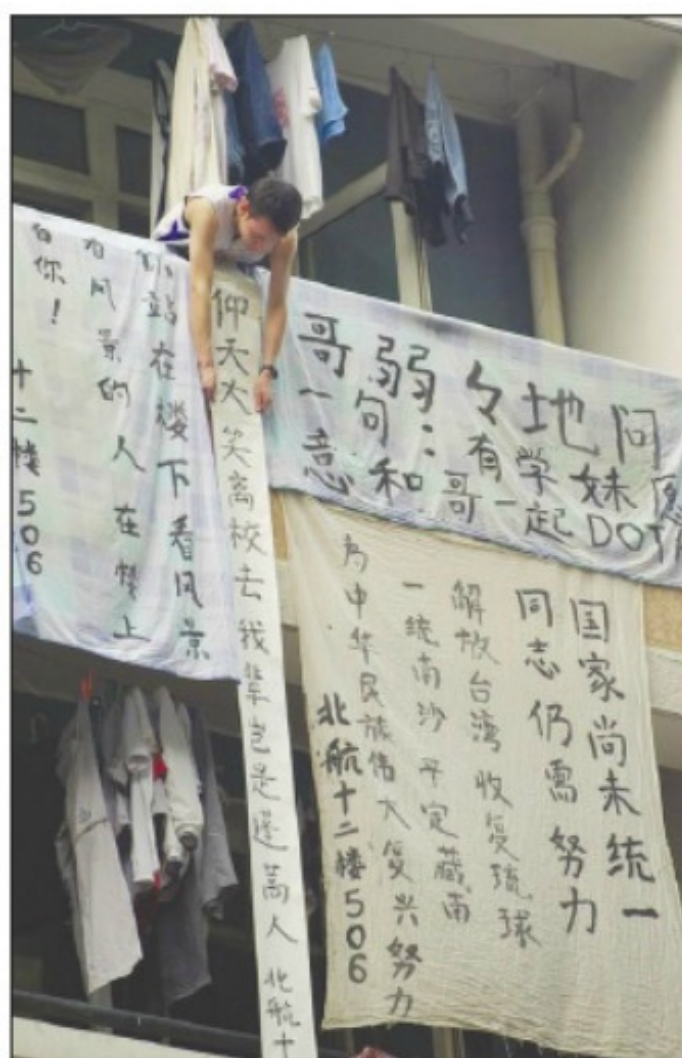 你站在楼下看风景
看风景的人在楼上
看你!
十二楼506
仰天大笑离校去我辈岂是蓬蒿人 北航十
哥弱々地问
一句:有学妹愿
意和哥一起DOTA
国家尚未统一
同志仍需努力
解放台湾 收复琉球
一统南沙 平定藏南
为中华民族伟大复兴努力
北航十二楼506